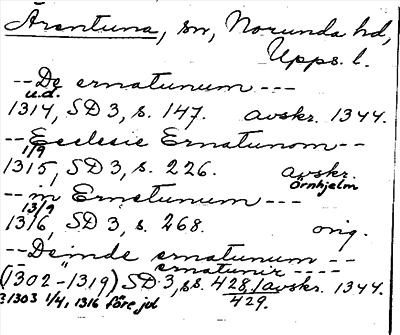 Ärentuna, sn, Norunda hd,
Upps. l.
-- De ernatunum ---
u.d.
1314, SD 3, s. 147. avskr. 1344.
-- Ecclesie Ernatunom --
1/9
1315, SD 3, s. 226. avskr.
Örnhjelm
-- in Ernatunum ---
13/9
1316, SD 3, s. 268. orig.
-- Deinde ernatunum --
ernatunir ----
(1302-1319) SD 3, ss. 428, avskr. 1344.
429.
1303 1/4, 1316 före jul